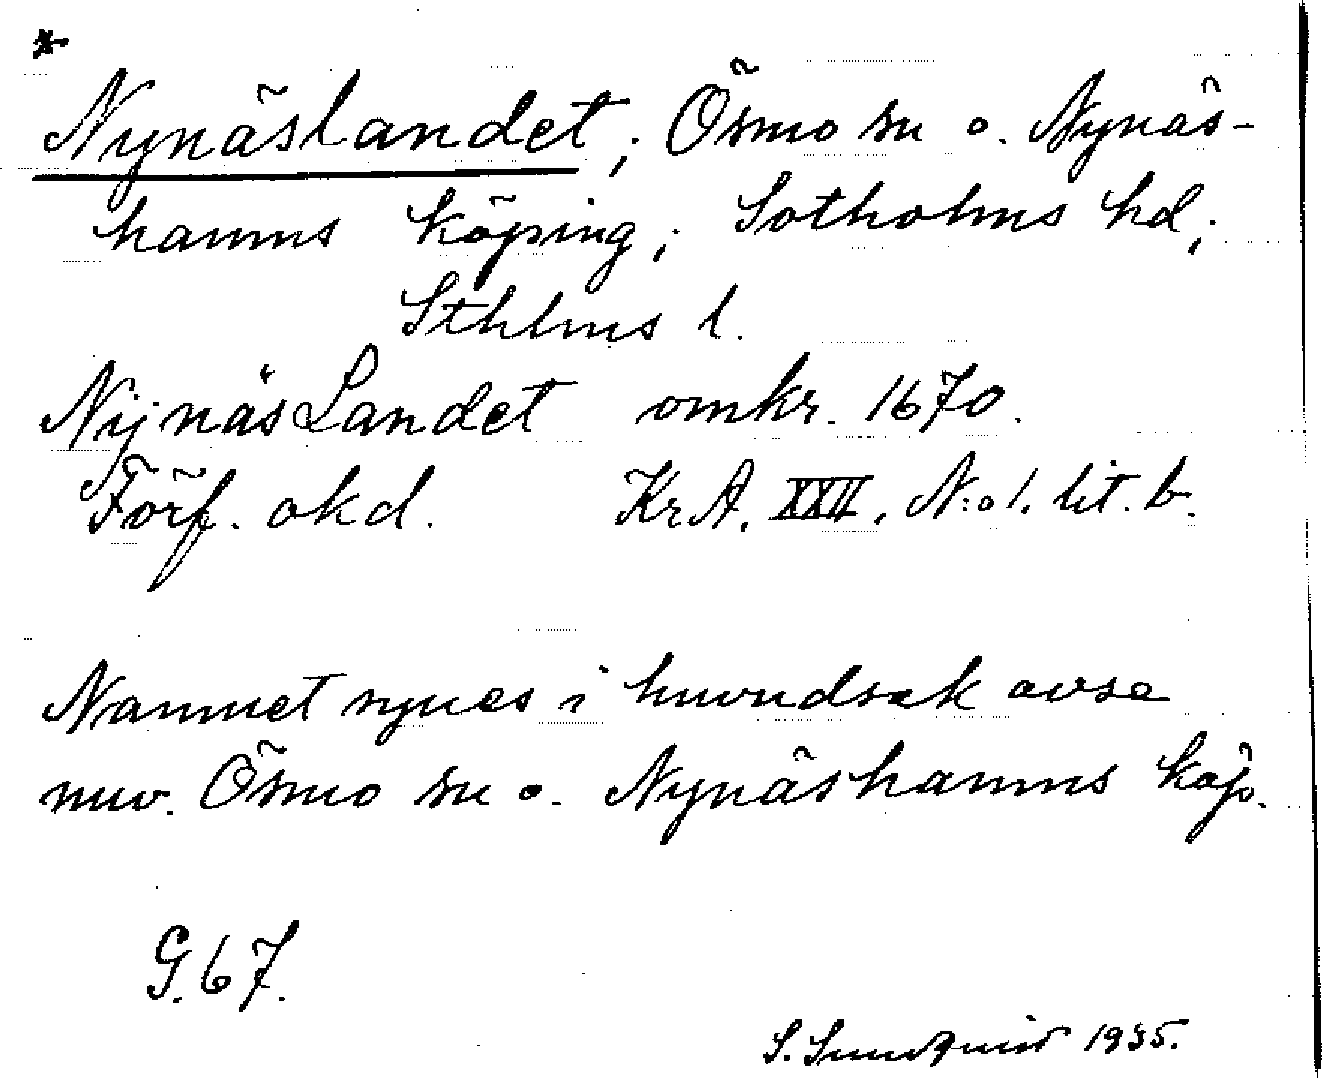 *
Nynäslandet; Ösmo sn o. Nynäs-
hamns köping; Sotholms hd;
Sthlms l.
NijnäsLandet omkr. 1670.
Förf. okd. KrA. XXII. N:o 1. lit. b.
Namnet synes i huvudsak avse
nuv. Ösmo sn o. Nynäshamns köp.
G. 67.
S. Sundquist 1935.